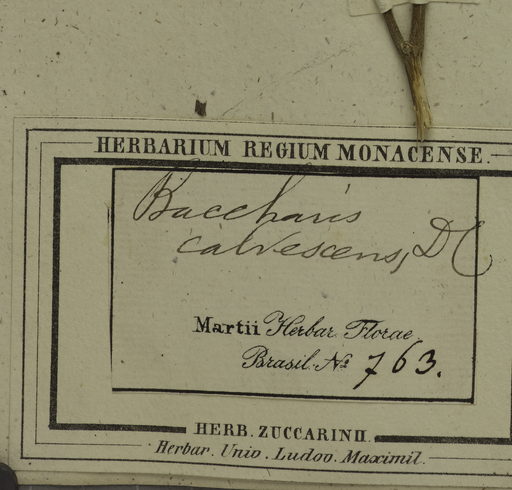 HERBARIUM REGIUM MONACENSE.
Baccharis
calvescens, DC
Martii Herbar. Florae
Brasil. No 763.
HERB. ZUCCARINII.
Herbar. Univ. Ludov. Maximil.